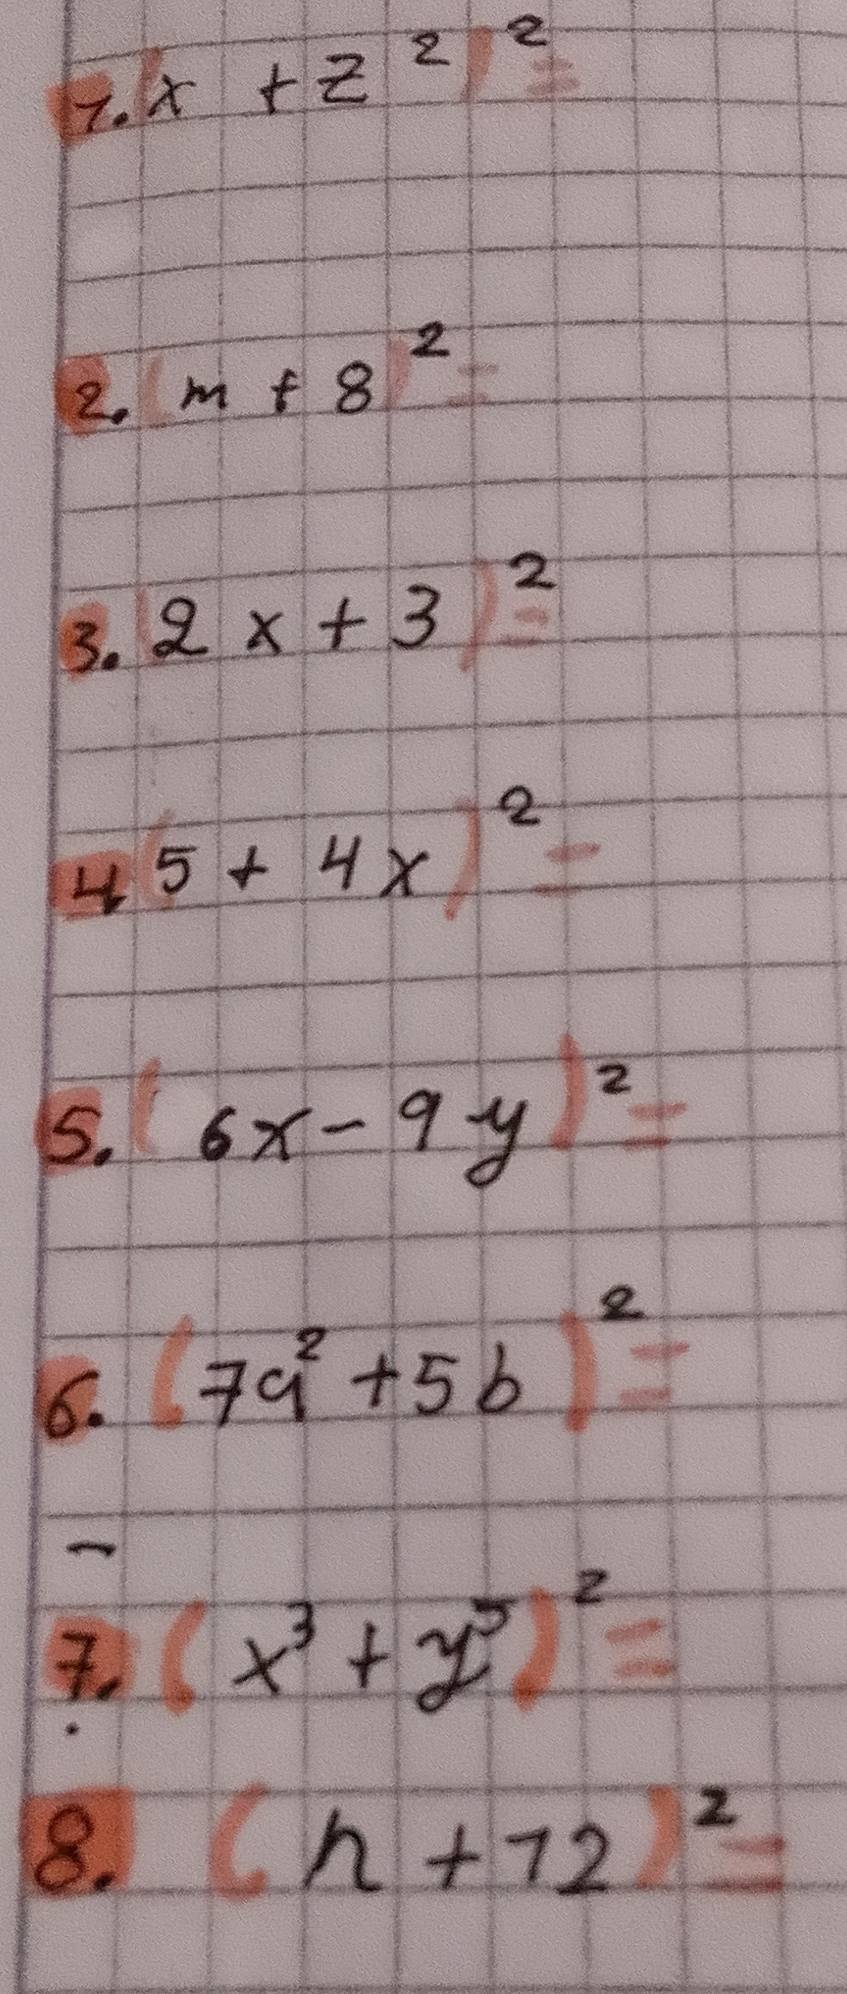 1. (x + z²)² =
2. (m + 8)² =
3. (2x + 3)² =
4. (5 + 4x)² =
5. (6x - 9y)² =
6. (7a² + 5b)² =
7. (x³ + y⁵)² =
8. (n + 12)² =